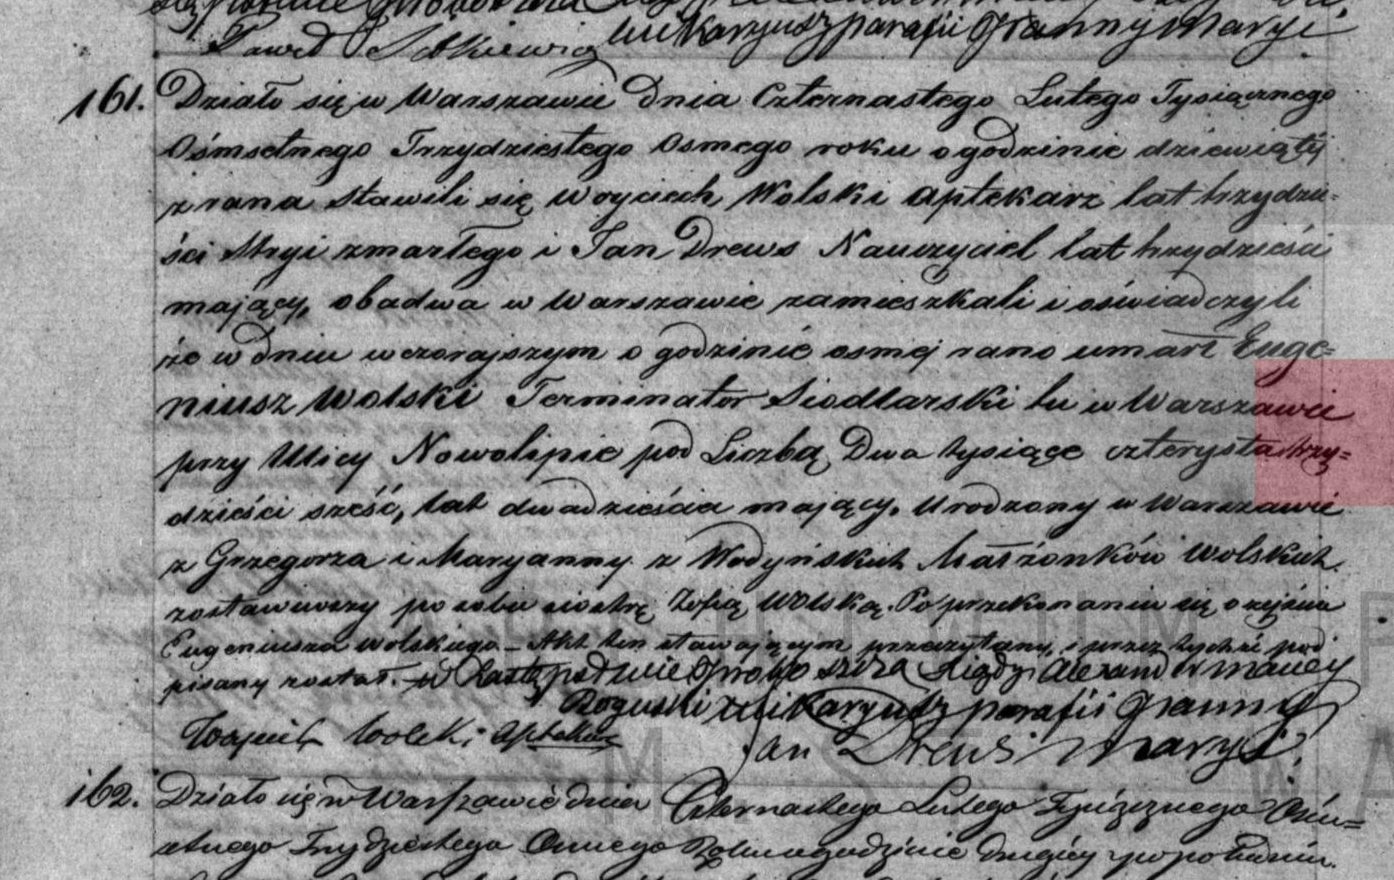 Paweł
wikaryusz parafii Panny Maryi
161. Działo się w Warszawie dnia Czternastego Lutego Tysiącznego
Ośmsetnego Trzydziestego Osmego roku o godzinie dziewiątéj
z rana stawili się Woyciech Wolski Aptekarz lat trzydzie=
ści Stryi zmarłego i Jan Drews Nauczyciel lat trzydzieści
mający, obadwa w Warszawie zamieszkali i oświadczyli
że w dniu wczorajszym o godzinie osmej rano umarł Euge=
niusz Wolski Terminator Siodlarski tu w Warszawie
przy Ulicy Nowolipie pod Liczbą Dwa tysiące czterysta trzy=
dzieści sześć, lat dwadzieścia mający, Urodzony w Warszawie
z Grzegorza i Maryanny z Wodyńskich Małżonków Wolskich.
zostawiwszy po sobie siostrę Zofią Wolską. Po przekonaniu się o zejściu
Eugeniusza Wolskiego – Akt ten stawającym przeczytany, i przez tychże pod
pisany został. – w Zastępstwie Proboszcza Xiądz Alexander
Rogulski wikaryusz parafii Panny
Wojciech Wolski Aptekarz Jan Drews Maryi
162. Działo się w Warszawie dnia Czternastego Lutego Tysiącznego Ośm=
setnego Trzydziestego Osmego Roku o godzinie drugiey po południu.
ARCHIWUM P
M ST WA